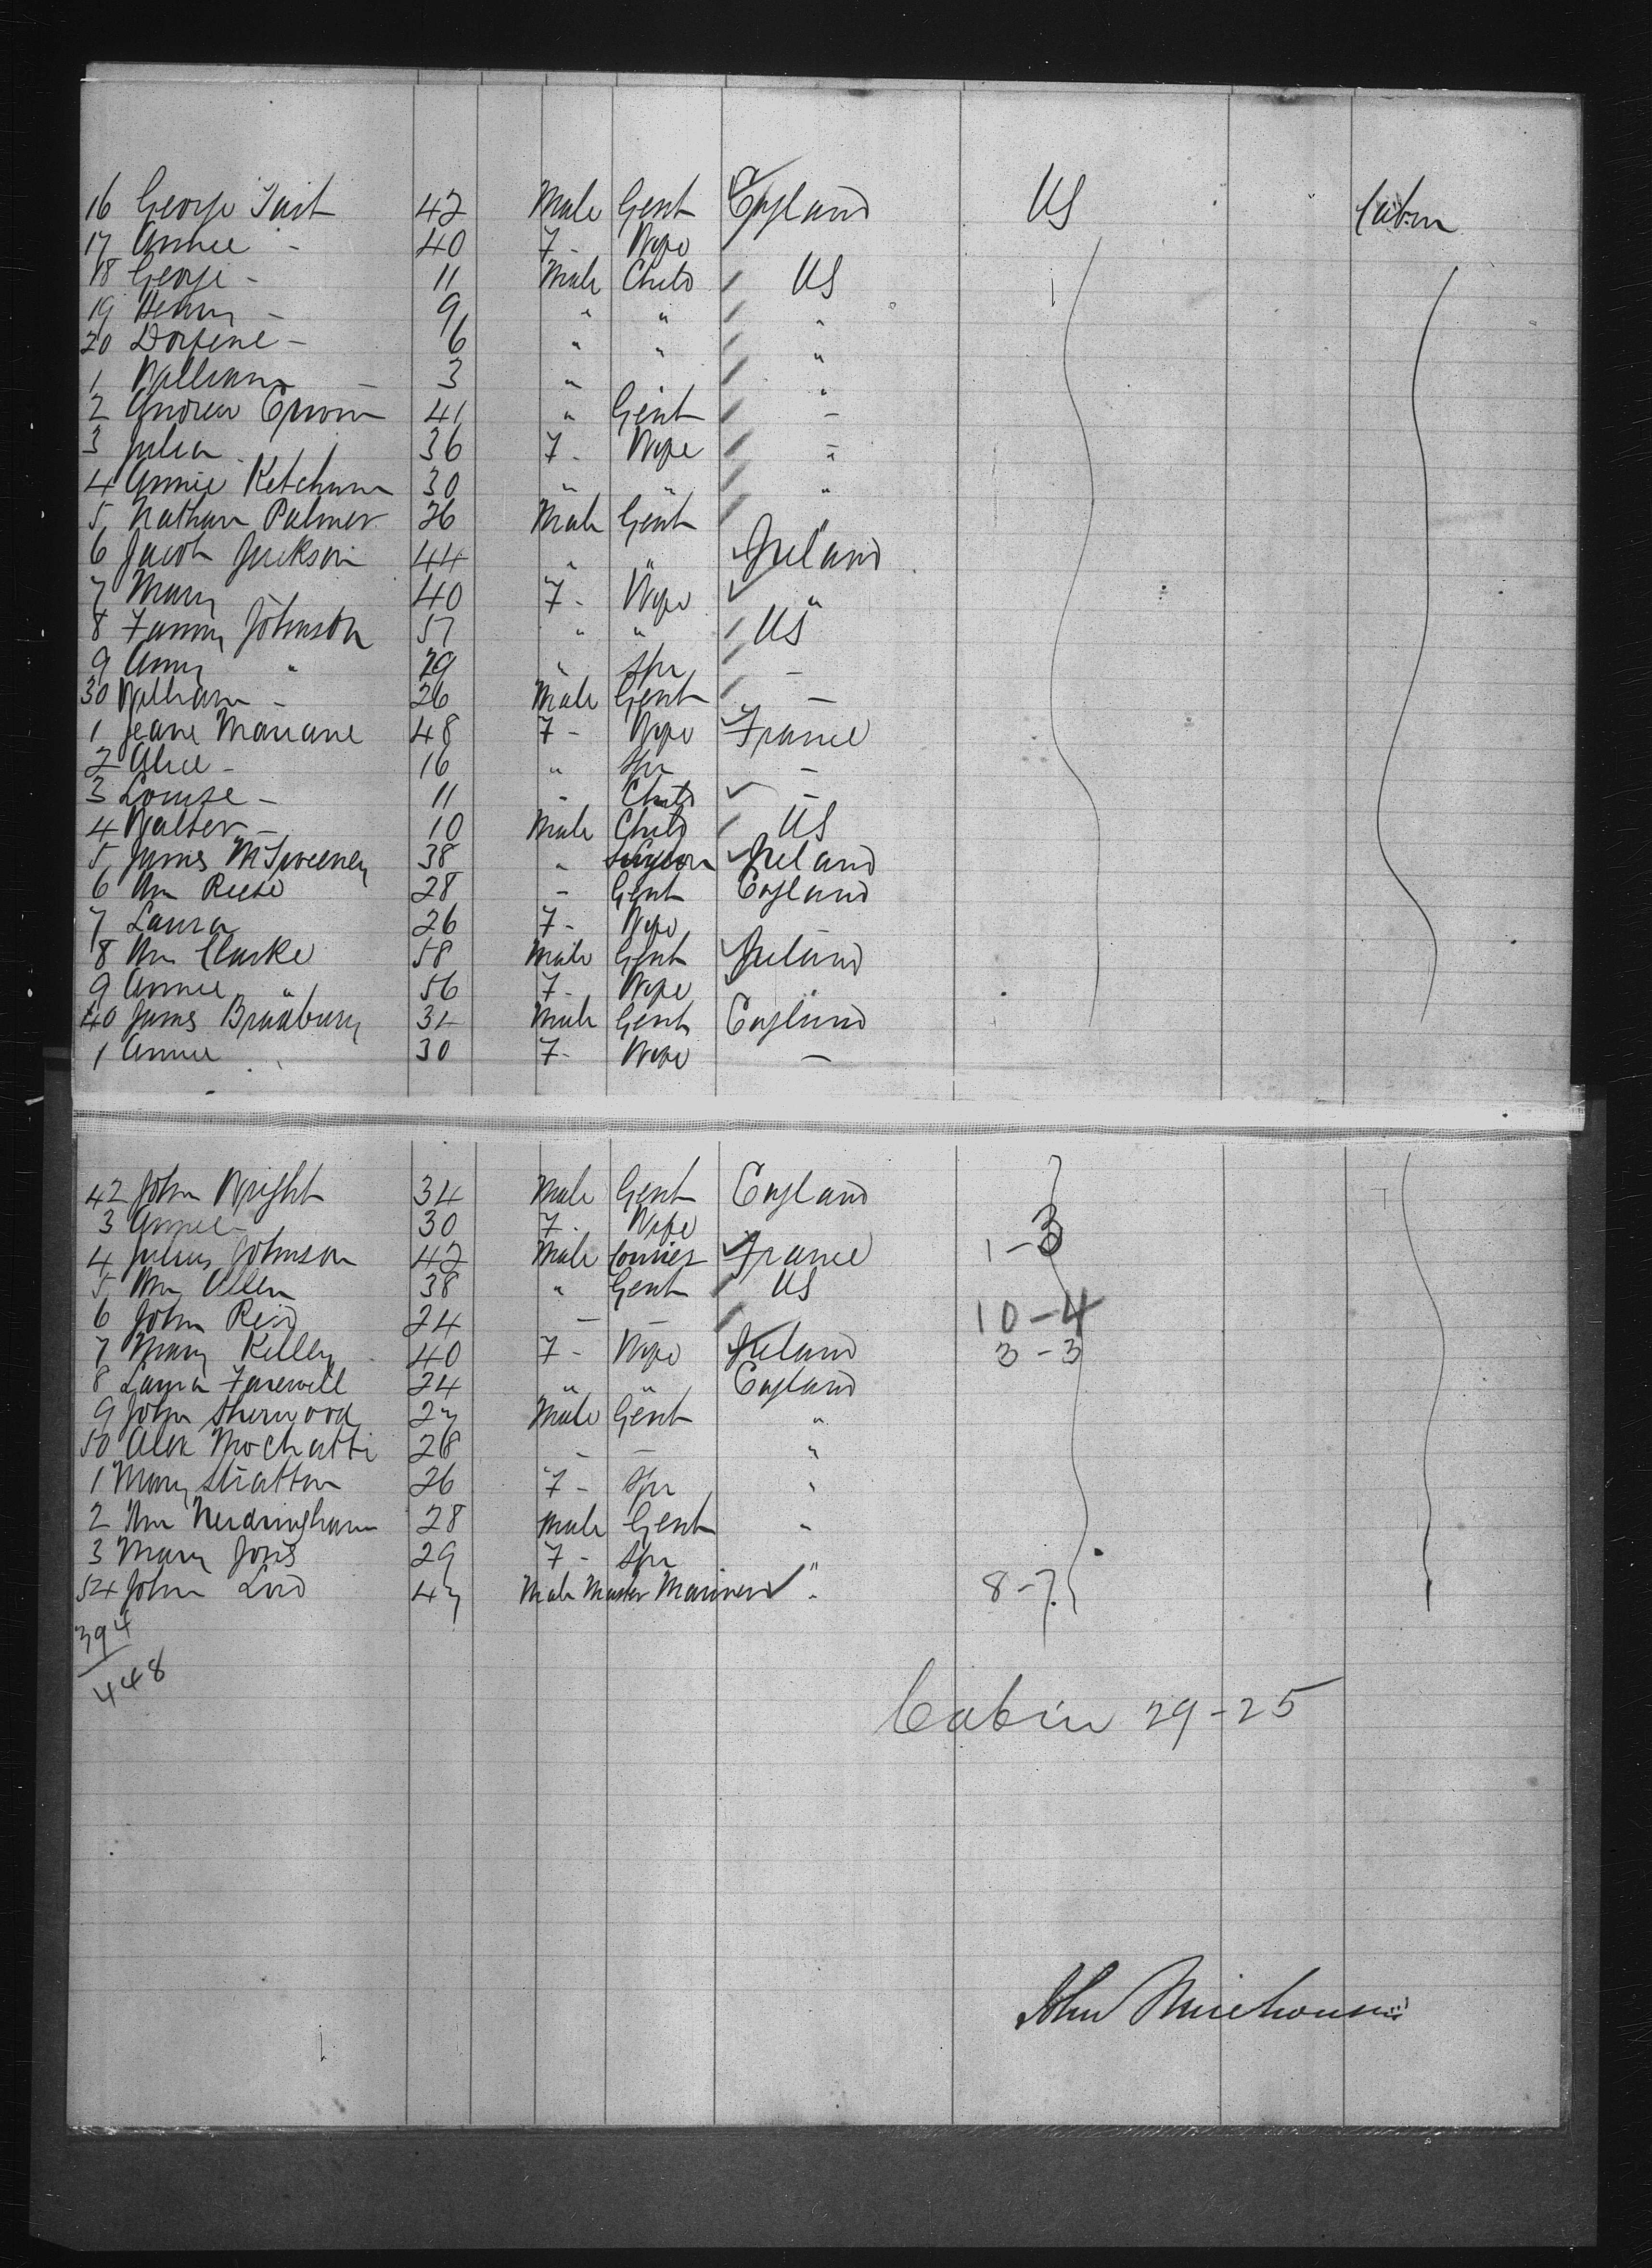 16 George Tait 42 Male Gent England US Cabin
17 Annie - 40 F- Wife
18 George - 11 Male Child US
19 Henry - 9 " " "
20 - 6 " " "
1 William - 3 " "
2 Andrew 41 " Gent -
3 Julia 36 F- Wife "
4 Annie Ketchum 30 " " "
5 Nathan Palmer 26 Male Gent "
6 Jacob Jackson 44 " " Ireland
7 Mary 40 F- Wife "
8 Fanny Johnson 57 " " US
9 Amy " 29 " Spr -
30 William - 26 Male Gent -
1 Jeane Mariane 48 F- Wife France
2 Alice - 16 " Spr -
3 Louise - 11 - Child -
4 Walter - 10 Male Child US
5 James McSweeney 38 " Surgeon Ireland
6 Wm 28 - Gent England
7 Laura 26 F- Wife
8 Wm Clarke 58 Male Gent Ireland
9 Annie " 56 F- Wife
40 James Bradbury 34 Male Gent England
1 Annie 30 F- Wife -
42 John Wright 34 Male Gent England
3 Annie - 30 F- Wife 1-3
4 Julius Johnson 42 Male Courier France
5 Wm Allen 38 " Gent US
6 John Reid 24 - - 10-4
7 Mary Kelley 40 F- Wife Ireland 3-3
8 Laura Farewell 24 " " England
9 John Sherwood 27 Male Gent "
50 Alex 28 - - "
1 Mary Stratton 26 F- Spr "
2 Wm 28 Male Gent "
3 Mary 29 F- Spr "
54 John Lord 47 Male Master Mariner " 8-7
394
448
Cabin 29-25
John